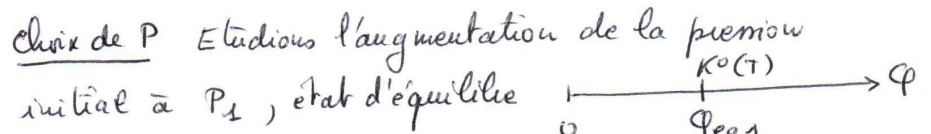 choix de P Etudions l'augmentation de la pression
K°(T)
initial à P1, état d'équilibre φ
0 φeq1